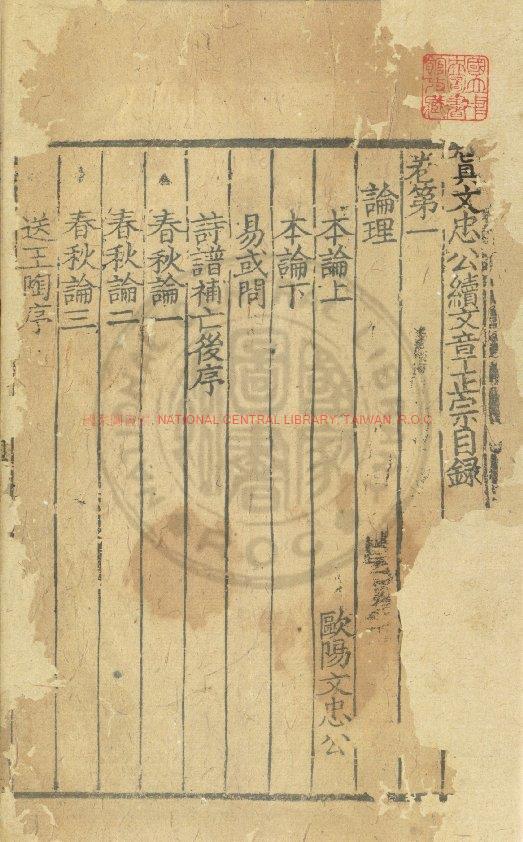 真文忠公續文章正宗目録
卷第一
論理
本論上
歐陽文忠公
本論下
易或問
詩譜補亡後序
春秋論一
春秋論二
春秋論三
送王陶序
國家圖書館, NATIONAL CENTRAL LIBRARY, TAIWAN, R.O.C